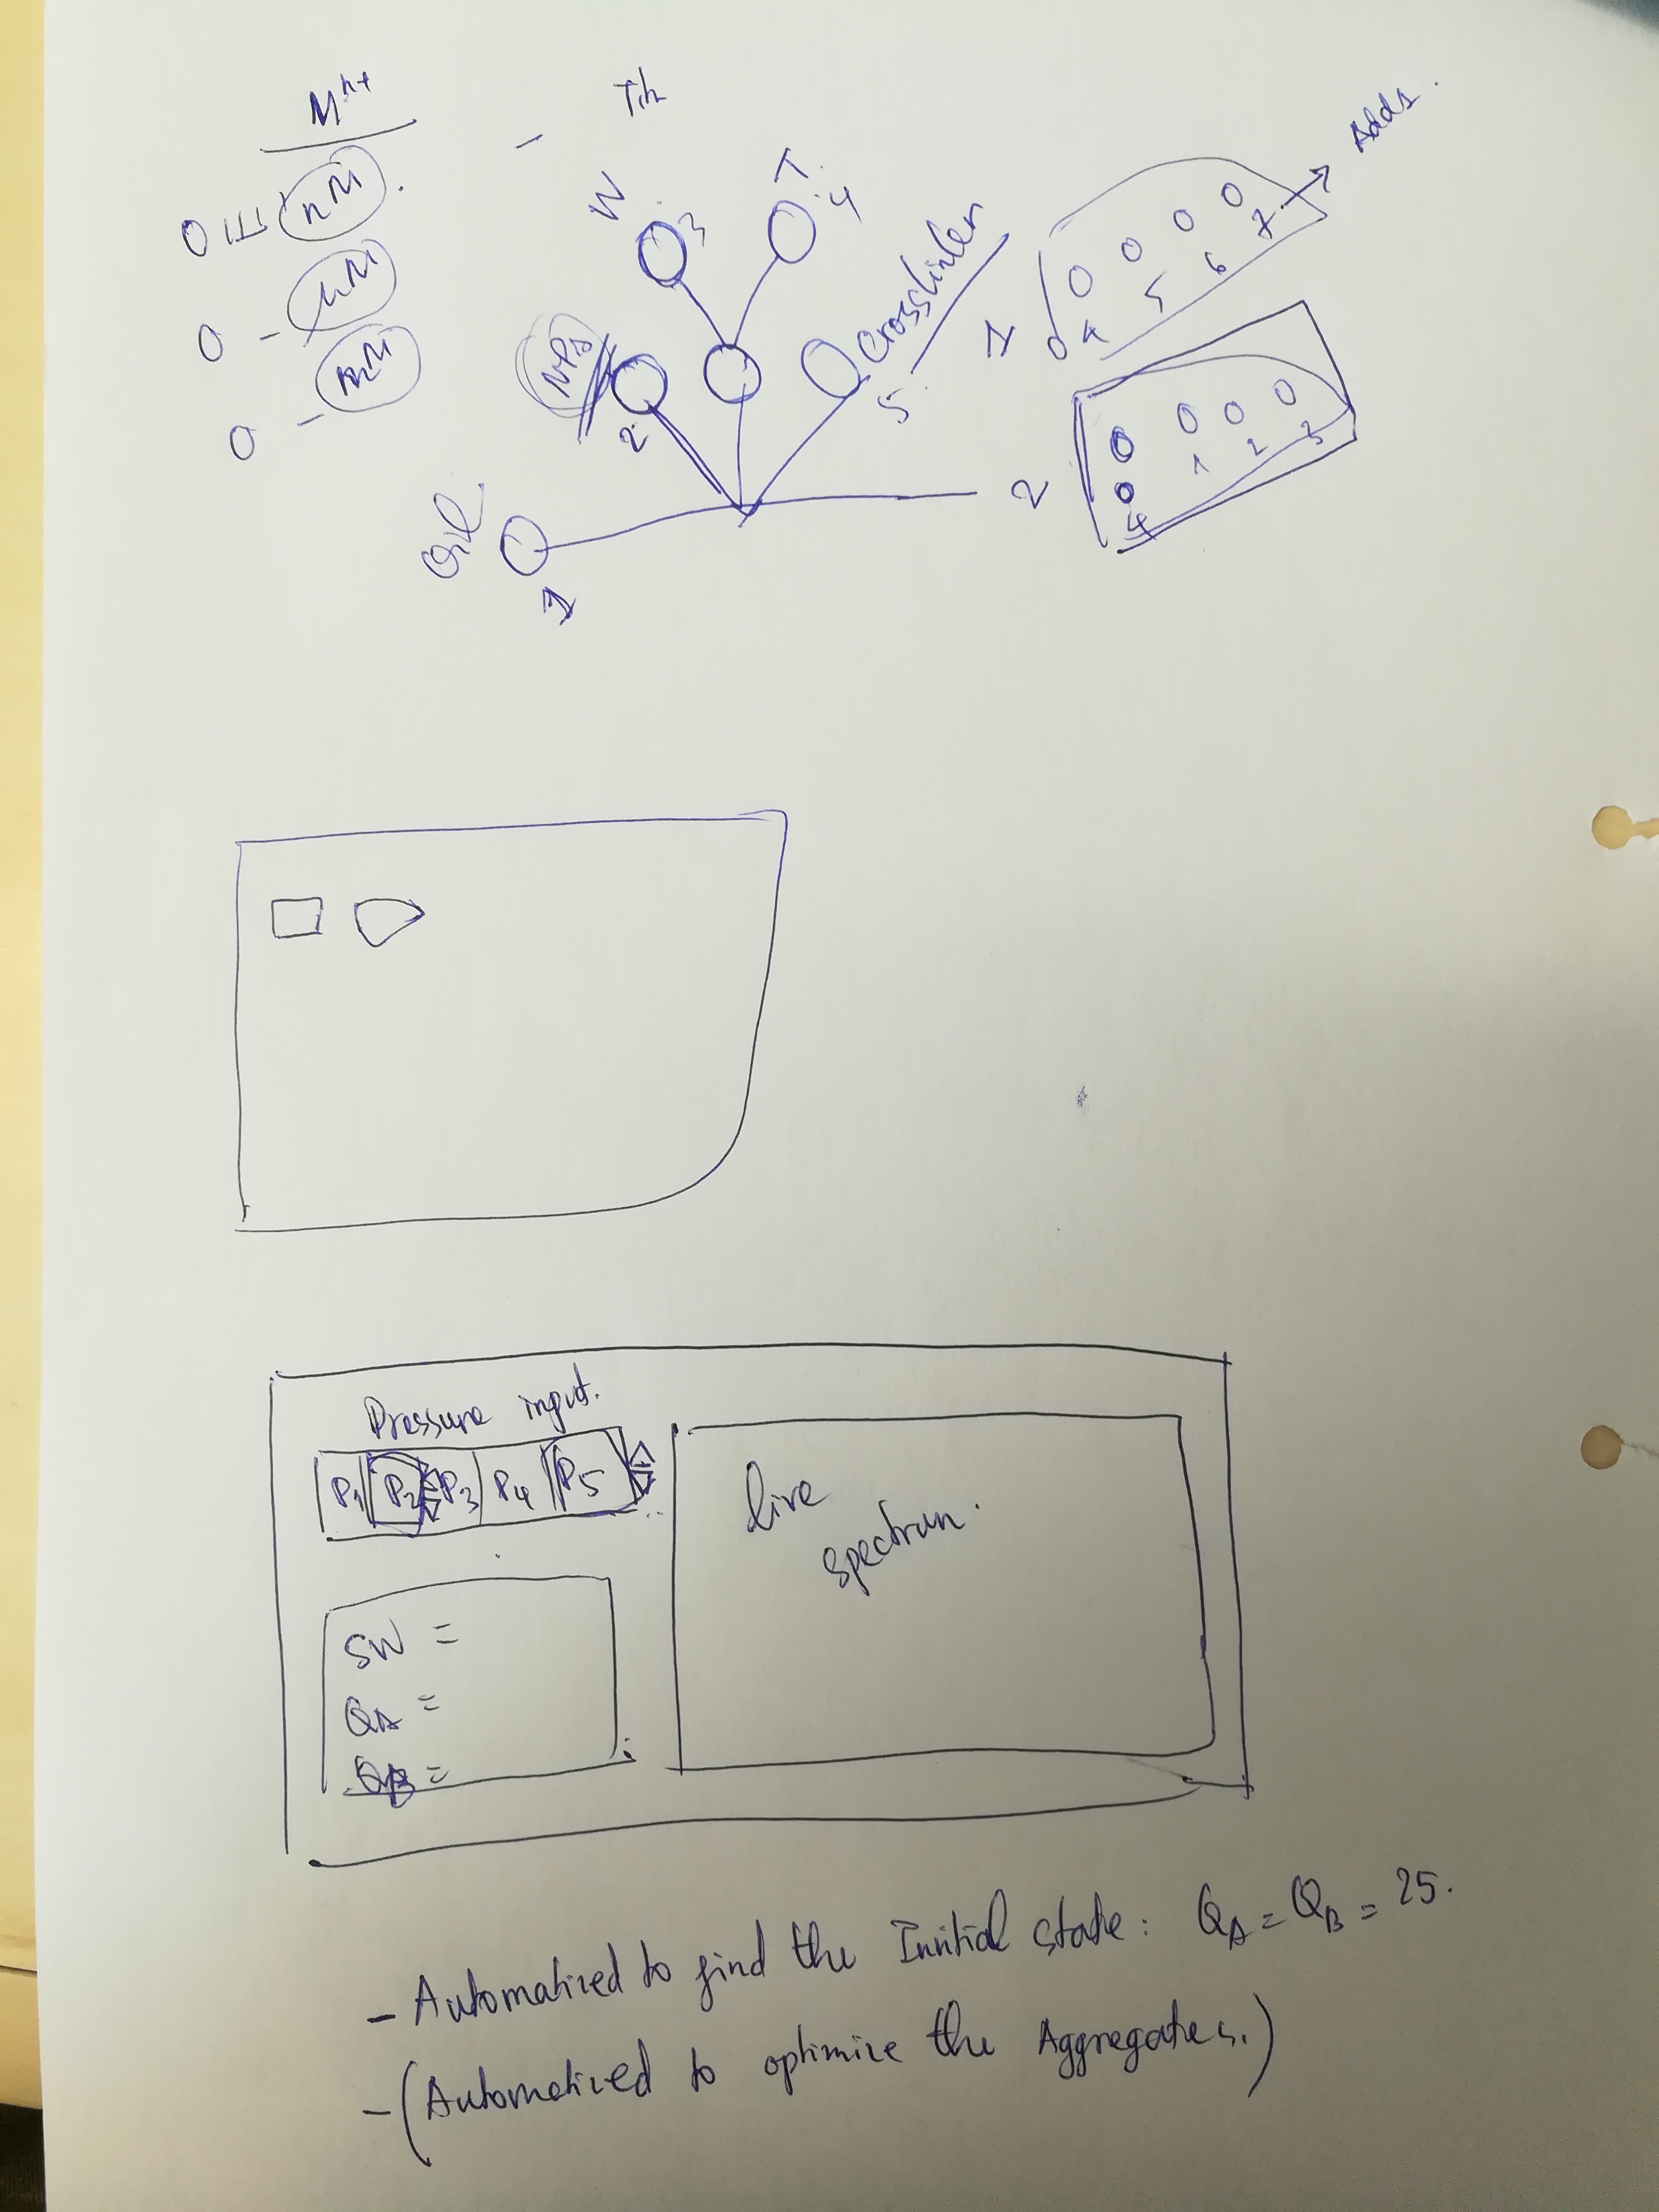 M^n+
nM
µM
mM
W
3
T
4
NPs
2
Crosslinker
5
Oil
1
1
4 5 6 7
Adds.
2
1 2 3
4
Pressure input.
P1 P2 P3 P4 P5
live
spectrum.
SW =
QA =
QB =
- Automatized to find the Initial state: QA = QB = 25.
- (Automatized to optimize the Aggregates.)